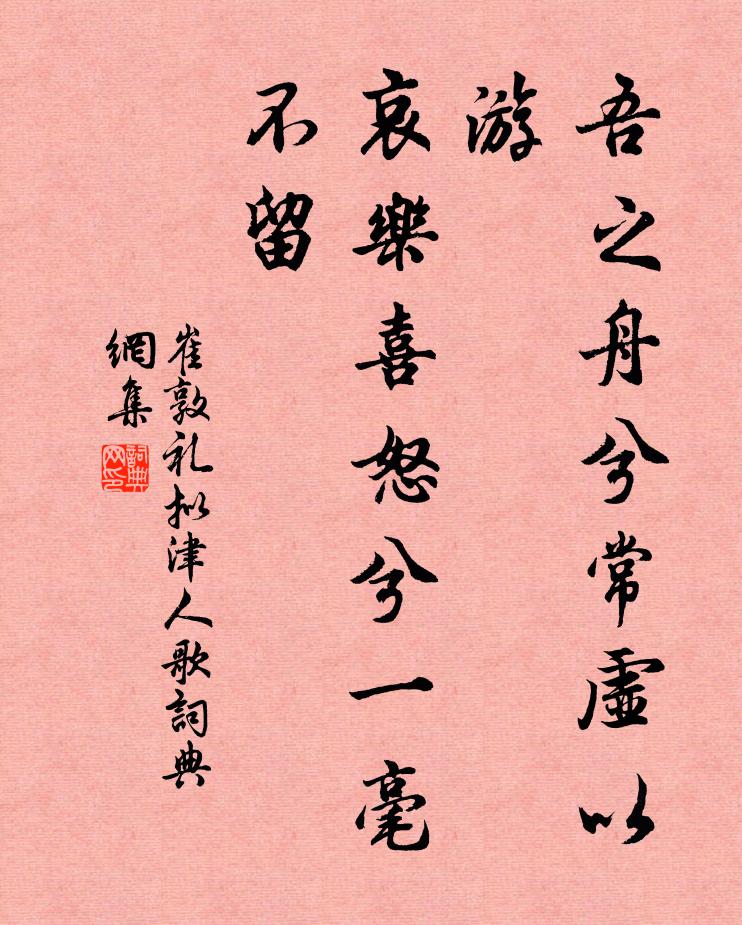 吾之舟兮常虛以
游
哀樂喜怒兮一毫
不留
崔敦礼拟津人歌詞典
網集
詞典
网印